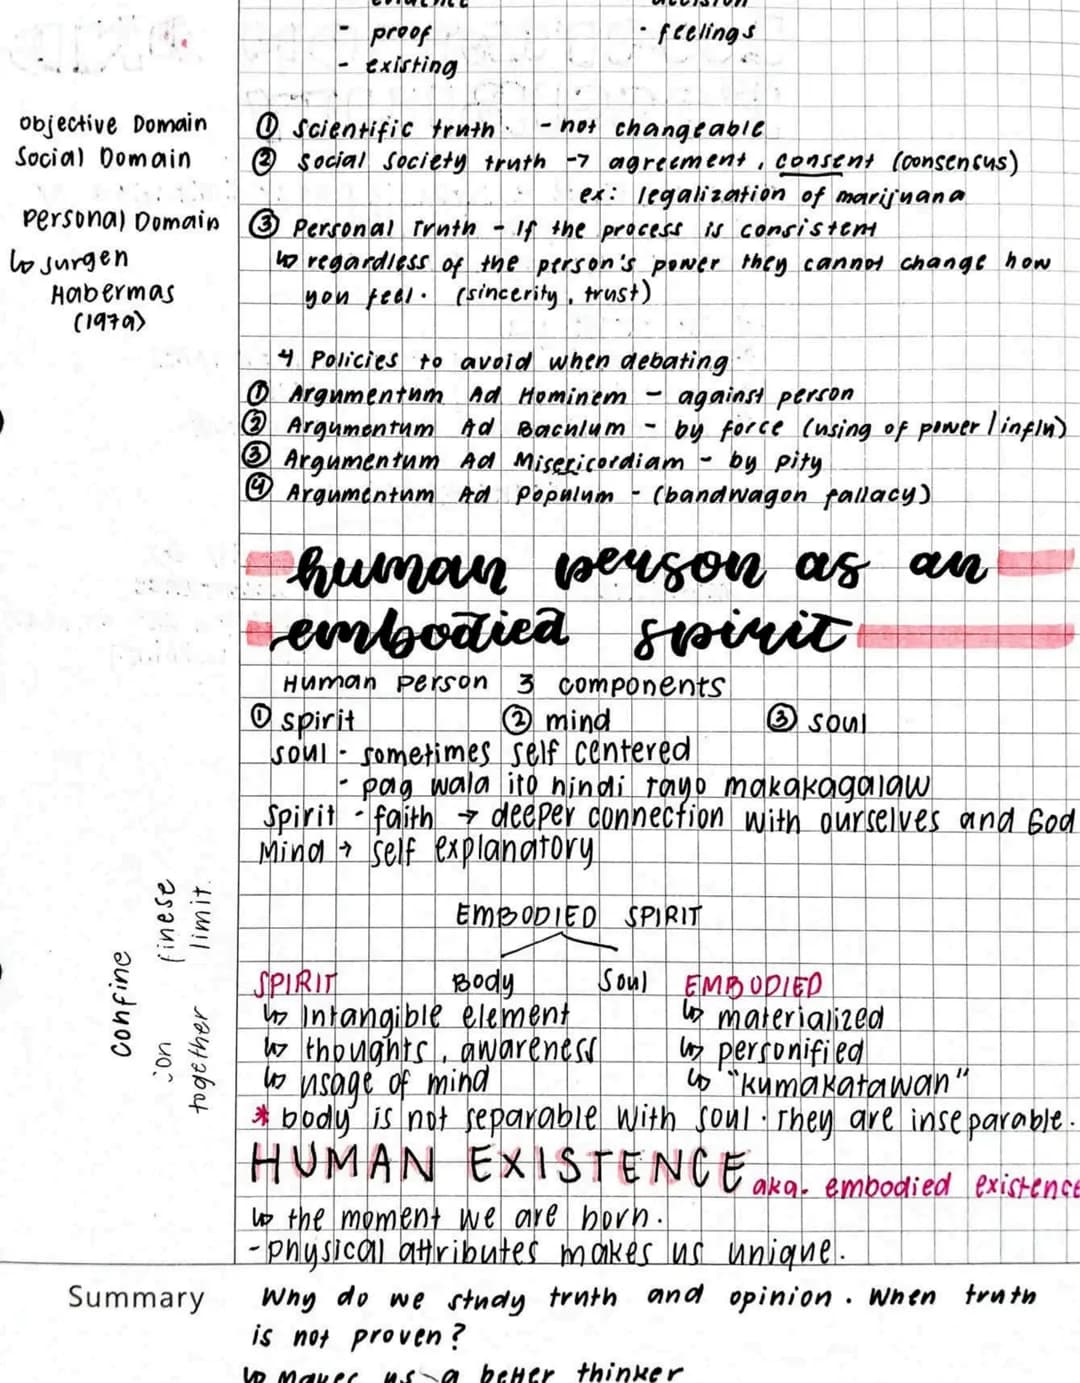 - proof
· feelings
- existing
objective Domain
① Scientific truth · - not changeable
Social Domain
② Social Society truth → agreement, consent (consensus)
ex: legalization of marijuana
personal Domain
③ Personal Truth - If the process is consistent
↳ Jurgen
Habermas
(1979)
↳ regardless of the person's power they cannot change how
you feel. (sincerity, trust)
4 Policies to avoid when debating
① Argumentum Ad Hominem - against person
② Argumentum Ad Baculum - by force (using of power / influ)
③ Argumentum Ad Misericordiam - by pity
④ Argumentum Ad Populum - (bandwagon fallacy)
human person as an
embodied spirit
Human Person 3 components
① spirit ② mind ③ soul
soul - sometimes self centered
- pag wala ito hindi tayo makakagalaw
Spirit - faith → deeper connection with ourselves and God
Mind → self explanatory
EMBODIED SPIRIT
Body Soul
SPIRIT
↳ Intangible element
↳ thoughts, awareness
↳ usage of mind
EMBODIED
↳ materialized
↳ personified
↳ "kumakatawan"
* body is not separable with soul. They are inseparable.
confine
ion finese
together limit.
HUMAN EXISTENCE aka. embodied existence
↳ the moment we are born.
- physical attributes makes us unique.
Summary
Why do we study truth and opinion. When truth
is not proven?
↳ Makes us a better thinker